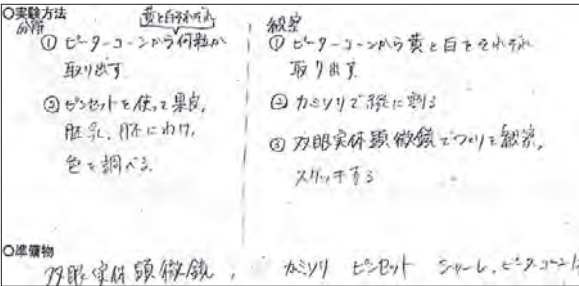 ○実験方法
分解
黄と白それぞれ
① ピーターコーンから何粒か
取り出す
② ピンセットを使って果皮、
胚乳、胚にわけ、
色を調べる。
観察
① ピーターコーンから黄と白をそれぞれ
取り出す
② カミソリで縦に割る
③ 双眼実体顕微鏡でつくりを観察、
スケッチする
○準備物
双眼実体顕微鏡, カミソリ ピンセット シャーレ、ピーターコーン